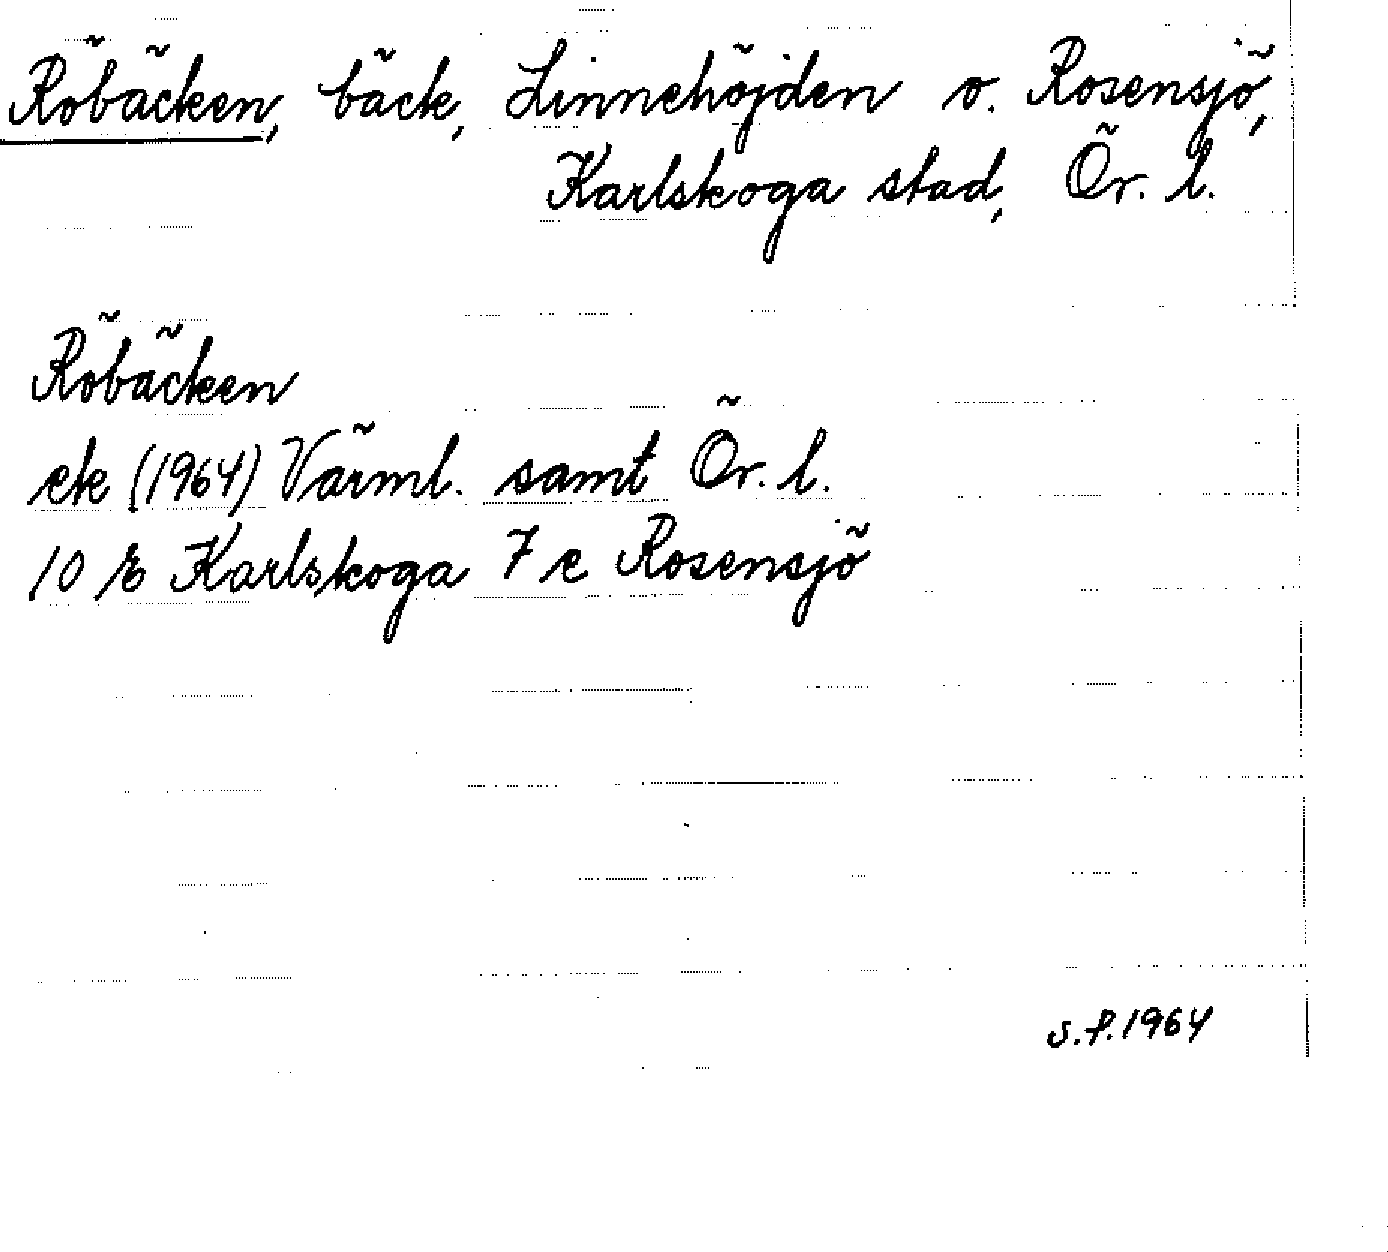 Röbäcken, bäck, Linnehöjden o. Rosensjö,
Karlskoga stad, Ör. l.
Röbäcken
ek (1964) Värml. samt Ör. l.
10 E Karlskoga 7 e Rosensjö
s.f. 1964